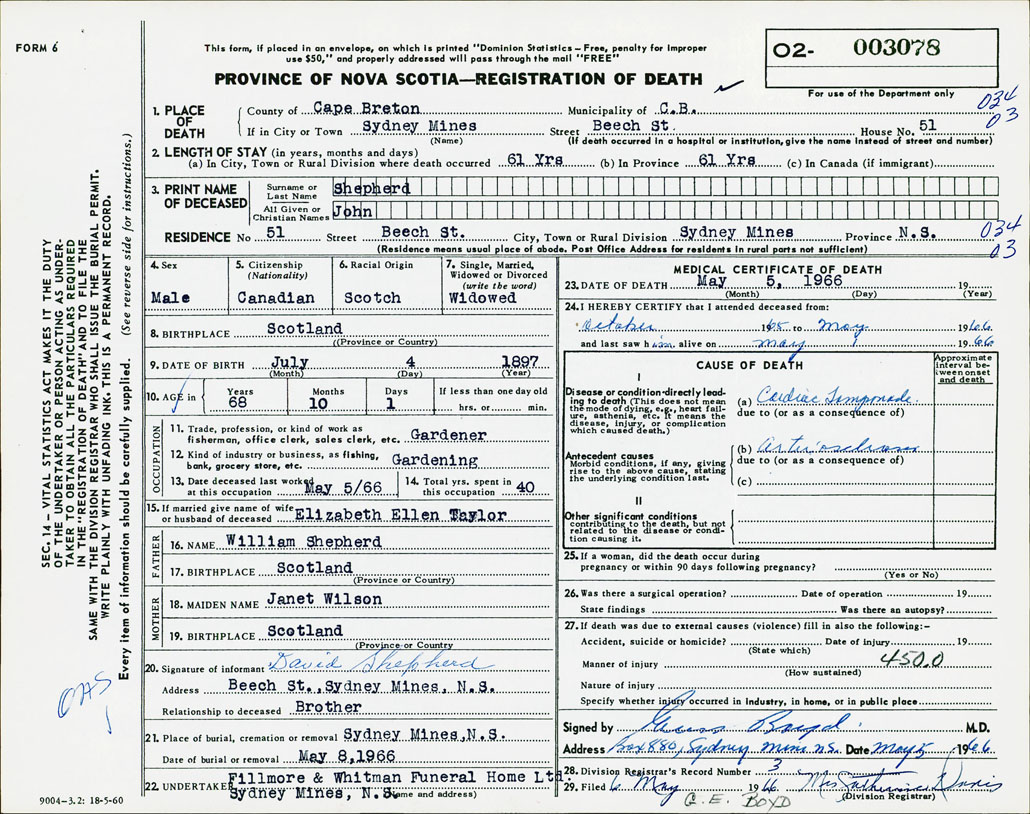 FORM 6
This form, if placed in an envelope, on which is printed "Dominion Statistics – Free, penalty for improper
use $50," and properly addressed will pass through the mail "FREE"
PROVINCE OF NOVA SCOTIA—REGISTRATION OF DEATH
02- 003078
For use of the Department only
034
03
1. PLACE OF DEATH
County of Cape Breton Municipality of C.B.
If in City or Town Sydney Mines Street Beech St. House No. 51
(Name) (If death occurred in a hospital or institution, give the name instead of street and number)
2. LENGTH OF STAY (in years, months and days)
(a) In City, Town or Rural Division where death occurred 61 Yrs (b) In Province 61 Yrs (c) In Canada (if immigrant)
3. PRINT NAME OF DECEASED
Surname or Last Name Shepherd
All Given or Christian Names John
RESIDENCE No 51 Street Beech St. City, Town or Rural Division Sydney Mines Province N.S.
(Residence means usual place of abode. Post Office Address for residents in rural parts not sufficient)
034
03
4. Sex
Male
5. Citizenship
(Nationality)
Canadian
6. Racial Origin
Scotch
7. Single, Married,
Widowed or Divorced
(write the word)
Widowed
8. BIRTHPLACE Scotland
(Province or Country)
9. DATE OF BIRTH July 4 1897
(Month) (Day) (Year)
10. AGE in
Years Months Days If less than one day old
68 10 1 hrs. or min.
OCCUPATION
11. Trade, profession, or kind of work as
fisherman, office clerk, sales clerk, etc. Gardener
12. Kind of industry or business, as fishing,
bank, grocery store, etc. Gardening
13. Date deceased last worked
at this occupation May 5/66
14. Total yrs. spent in
this occupation 40
15. If married give name of wife
or husband of deceased Elizabeth Ellen Taylor
FATHER
16. NAME William Shepherd
17. BIRTHPLACE Scotland
(Province or Country)
MOTHER
18. MAIDEN NAME Janet Wilson
19. BIRTHPLACE Scotland
(Province or Country)
20. Signature of informant David Shepherd
Address Beech St., Sydney Mines, N.S.
Relationship to deceased Brother
21. Place of burial, cremation or removal Sydney Mines, N.S.
Date of burial or removal May 8,1966
22. UNDERTAKER Fillmore & Whitman Funeral Home Ltd.
Sydney Mines, N.S.
(Name and address)
MEDICAL CERTIFICATE OF DEATH
23. DATE OF DEATH May 5, 1966 19
(Month) (Day) (Year)
24. I HEREBY CERTIFY that I attended deceased from:
October 1965 to May 1966
and last saw him alive on May 1 1966
CAUSE OF DEATH
Approximate
interval be-
tween onset
and death
I
Disease or condition directly lead-
ing to death (This does not mean
the mode of dying, e.g., heart fail-
ure, asthenia, etc. It means the
disease, injury, or complication
which caused death.)
(a) Cardiac Tamponade
due to (or as a consequence of)
Antecedent causes
Morbid conditions, if any, giving
rise to the above cause, stating
the underlying condition last.
(b)
due to (or as a consequence of)
(c)
II
Other significant conditions
contributing to the death, but not
related to the disease or condi-
tion causing it.
25. If a woman, did the death occur during
pregnancy or within 90 days following pregnancy?
(Yes or No)
26. Was there a surgical operation? Date of operation 19
State findings Was there an autopsy?
27. If death was due to external causes (violence) fill in also the following:–
Accident, suicide or homicide? Date of injury 19
(State which)
Manner of injury 450.0
(How sustained)
Nature of injury
Specify whether injury occurred in industry, in home, or in public place
Signed by Boyd M.D.
Address Box 880, Sydney Mines N.S. Date May 5 1966
28. Division Registrar's Record Number 3
29. Filed 6 May 1966 Mrs
(Division Registrar)
G. E. BOYD
SEC. 14 – VITAL STATISTICS ACT MAKES IT THE DUTY
OF THE UNDERTAKER OR PERSON ACTING AS UNDER-
TAKER TO OBTAIN ALL THE PARTICULARS REQUIRED
IN THE "REGISTRATION OF DEATH" AND TO FILE THE
SAME WITH THE DIVISION REGISTRAR WHO SHALL ISSUE THE BURIAL PERMIT.
WRITE PLAINLY WITH UNFADING INK. THIS IS A PERMANENT RECORD.
Every item of information should be carefully supplied. (See reverse side for instructions.)
9004–3.2: 18-5-60